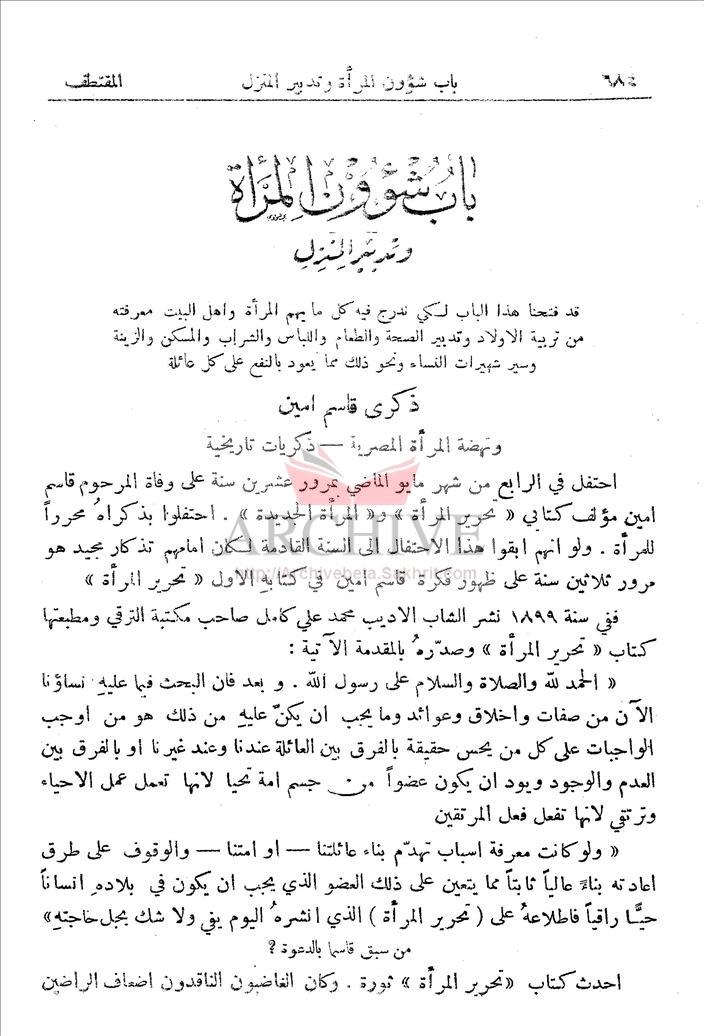 ٦٨٤ باب شؤون المرأة وتدبير المنزل المقتطف
باب شؤون المرأة
وتدبير المنزل
قد فتحنا هذا الباب لكي ندرج فيه كل ما يهم المرأة واهل البيت معرفته
من تربية الاولاد وتدبير الصحة والطعام واللباس والشراب والمسكن والزينة
وسير شهيرات النساء ونحو ذلك مما يعود بالنفع على كل عائلة
ذكرى قاسم امين
ونهضة المرأة المصرية — ذكريات تاريخية
احتفل في الرابع من شهر مايو الماضي بمرور عشرين سنة على وفاة المرحوم قاسم
امين مؤلف كتابي « تحرير المرأة » و« المرأة الجديدة » . احتفلوا بذكراهُ محرراً
للمرأة . ولو انهم ابقوا هذا الاحتفال الى السنة القادمة لكان امامهم تذكار مجيد هو
مرور ثلاثين سنة على ظهور فكرة قاسم امين في كتابهِ الاول « تحرير المرأة »
ARCHIVE
http://Archivebeta.Sakhrit.com
ففي سنة ١٨٩٩ نشر الشاب الاديب محمد علي كامل صاحب مكتبة الترقي ومطبعتها
كتاب « تحرير المرأة » وصدّرهُ بالمقدمة الآتية :
« الحمد لله والصلاة والسلام على رسول الله . و بعد فان البحث فيما عليهِ نساؤنا
الآن من صفات واخلاق وعوائد وما يجب ان يكنّ عليهِ من ذلك هو من اوجب
الواجبات على كل من يحس حقيقة بالفرق بين العائلة عندنا وعند غيرنا او بالفرق بين
العدم والوجود ويود ان يكون عضواً من جسم امة تحيا لانها تعمل عمل الاحياء
وترتقي لانها تفعل فعل المرتقين
« ولو كانت معرفة اسباب تهدّم بناء عائلتنا — او امتنا — والوقوف على طرق
اعادته بناءً عالياً ثابتاً مما يتعين على ذلك العضو الذي يجب ان يكون في بلادهِ انساناً
حيًّا راقياً فاطلاعهُ على ( تحرير المرأة ) الذي انشرهُ اليوم يفي ولا شك بجل حاجتهِ»
من سبق قاسماً بالدعوة ؟
احدث كتاب «تحرير المرأة » ثورة . وكان الغاضبون الناقدون اضعاف الراضين